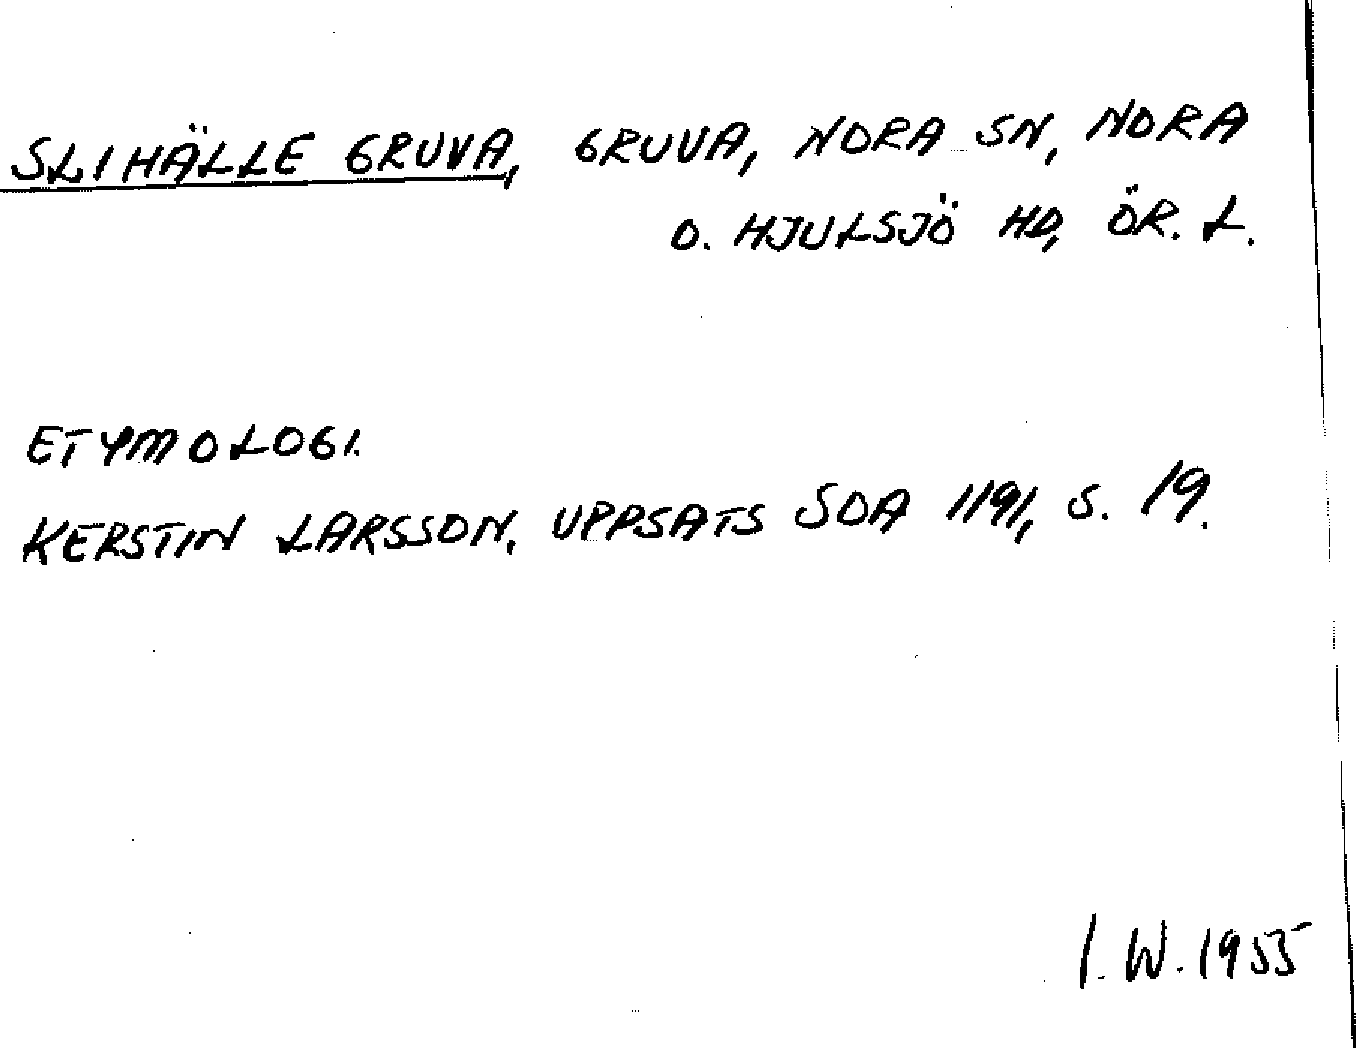 SLIHÄLLE GRUVA, GRUVA, NORA SN, NORA
O. HJULSJÖ HD, ÖR. L.
ETYMOLOGI.
KERSTIN LARSSON, UPPSATS SOA 1191, S. 19.
I. W. 1955